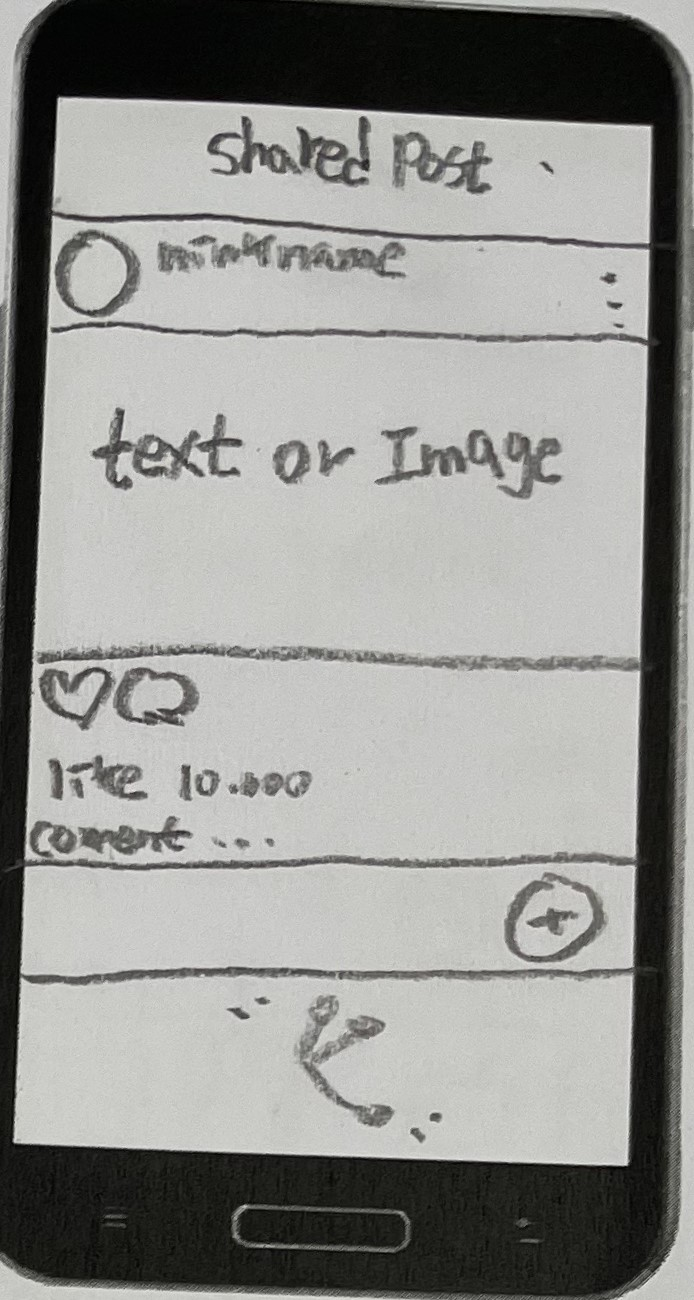 Shared Post
ninkname
text or Image
like 10.000
coment ...
+